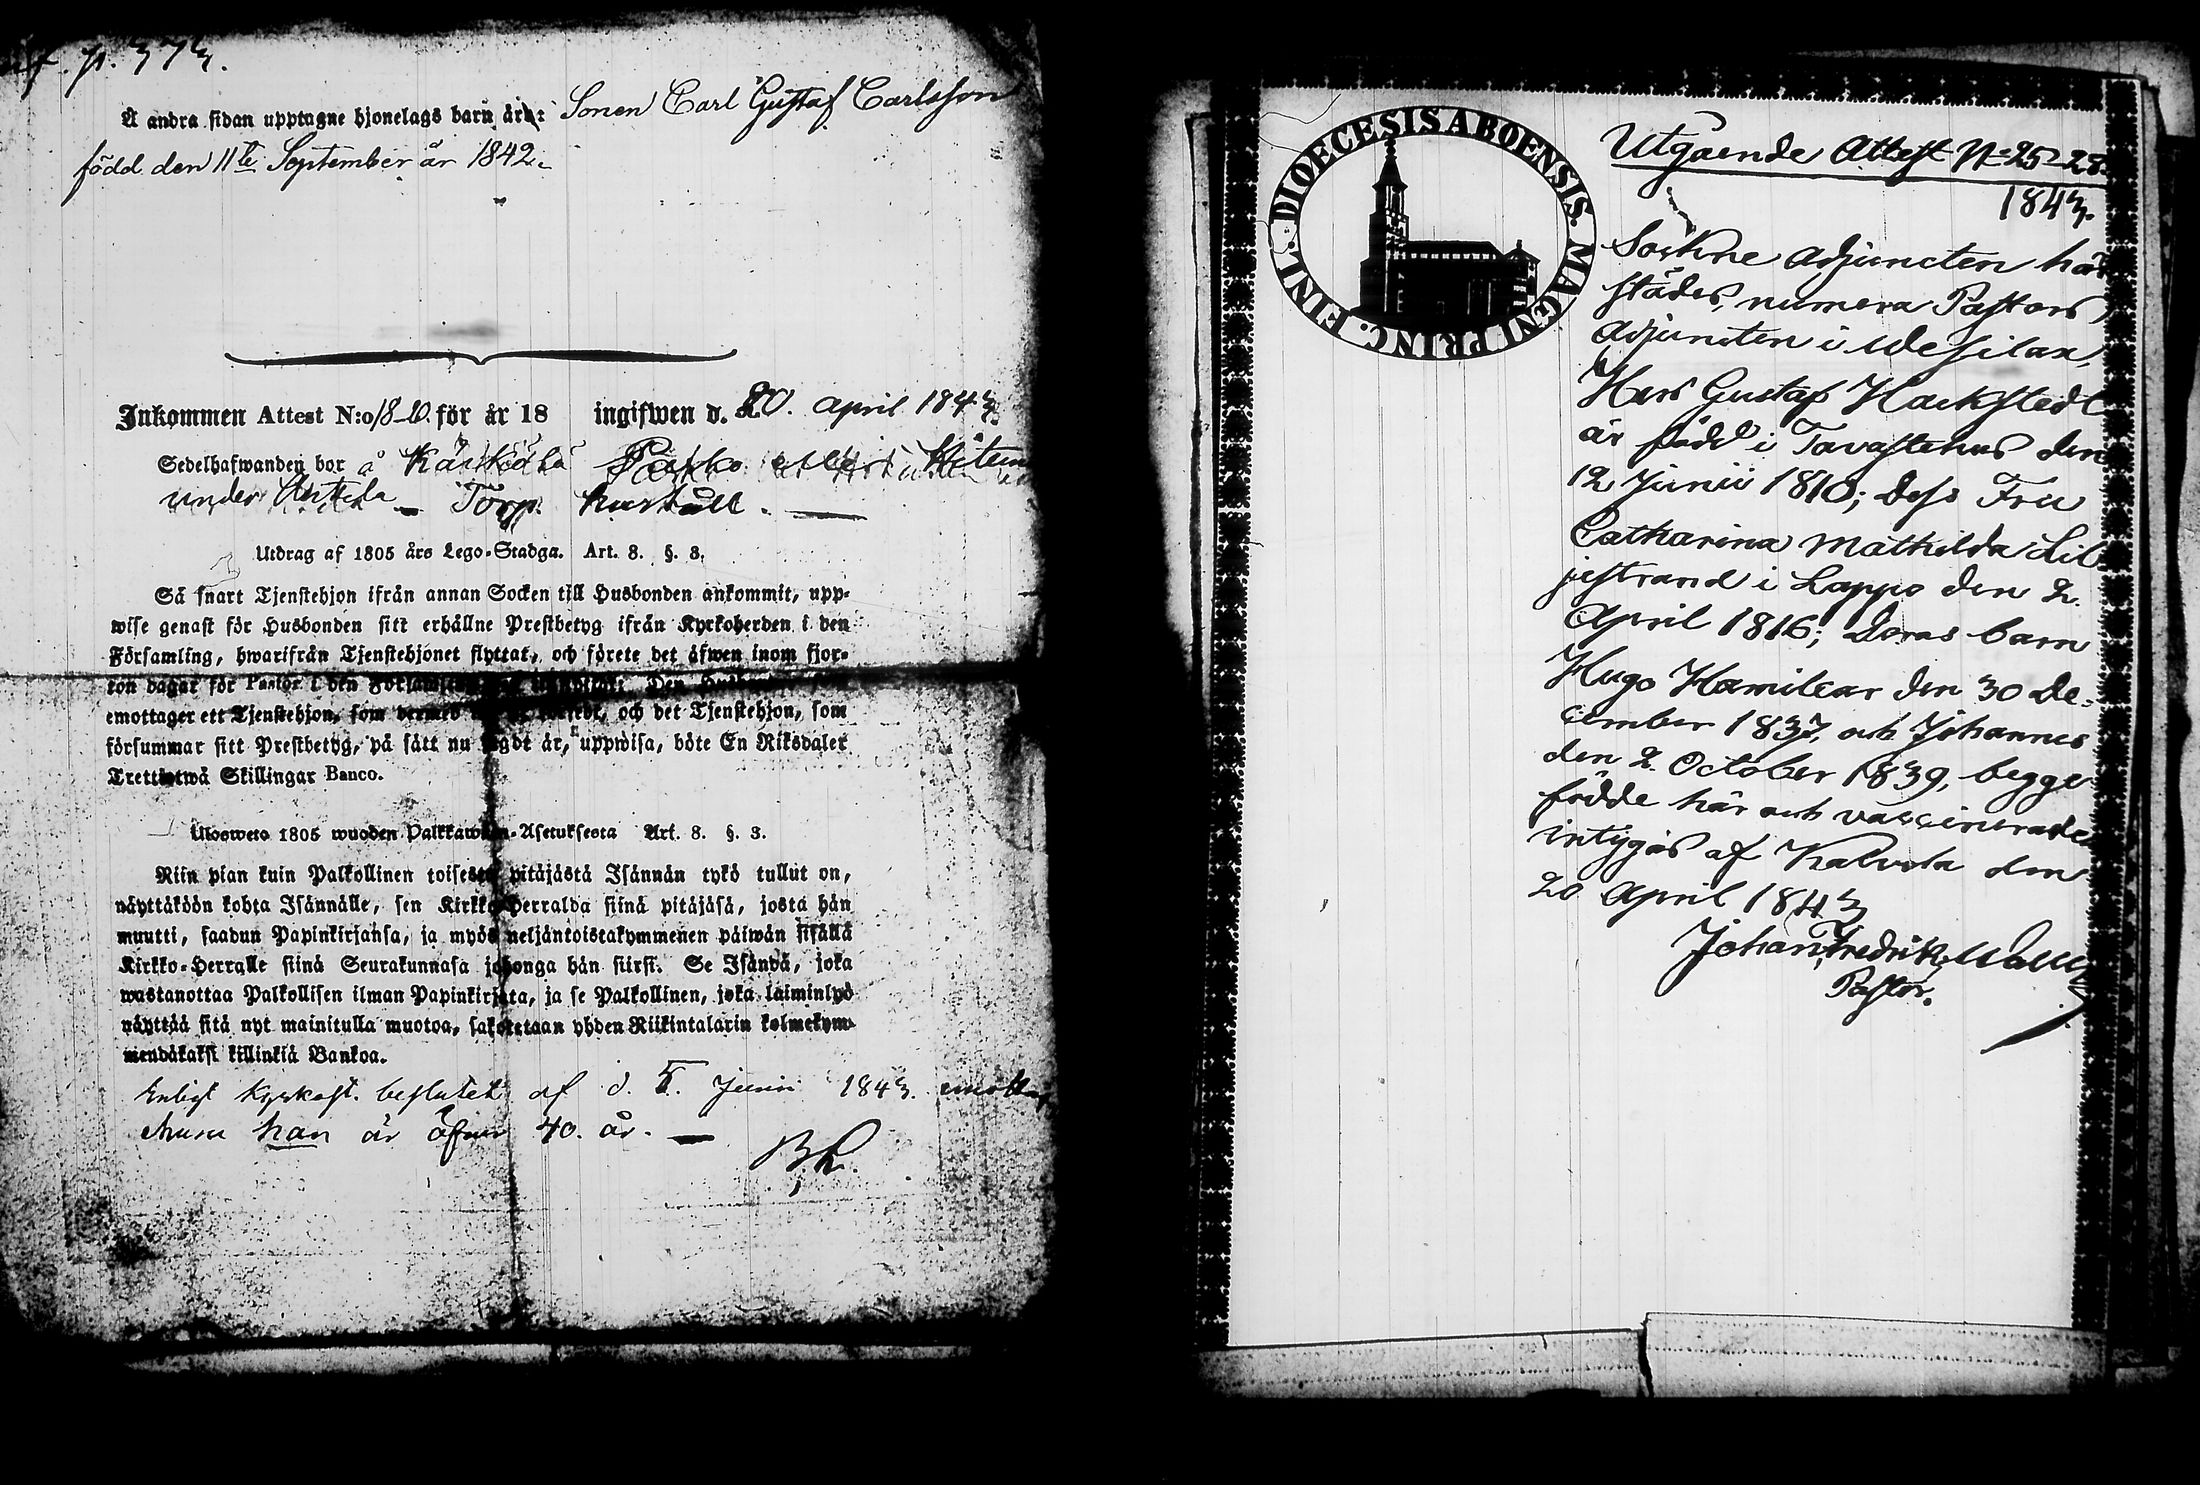 p. 373.
Å andra sidan upptagne hjonelags barn äro: Sonen Carl Gustaf Carlsson
född den 11te September år 1842.
Inkommen Attest N:o 18-20. för år 18 ingifwen d. 20. april 1843
Sedelhafwanden bor å
under Torp.
Utdrag af 1805 års Lego-Stadga. Art. 8. §. 3.
Så snart Tjenstehjon ifrån annan Socken till Husbonden ankommit, upp-
wise genast för Husbonden sitt erhållne Prestbetyg ifrån Kyrkoherden i den
Församling, hwarifrån Tjenstehjonet flyttat, och förete det äfwen inom fjor-
ton dagar för Pastor i den Den
emottager ett Tjenstehjon, som dermed och det Tjenstehjon, som
försummar sitt Prestbetyg, på sätt nu sagdt är, uppwisa, böte En Riksdaler
Trettiotwå Skillingar Banco.
Ulosweto 1805 wuoden Palkkawäen-Asetuksesta Art. 8. §. 3.
Niin pian kuin Palkollinen toisesta pitäjästä Isännän tykö tullut on,
näyttäköön kohta Isännälle, sen Kirkko-Herralda siinä pitäjäsä, josta hän
muutti, saadun Papinkirjansa, ja myös neljäntoistakymmenen päiwän sisällä
Kirkko-Herralle siinä Seurakunnasa johonga hän siirsi. Se Isändä, joka
wastanottaa Palkollisen ilman Papinkirjata, ja se Palkollinen, joka laiminlyö
näyttää sitä nyt mainitulla muotoa, sakotetaan yhden Riikintalarin kolmekym-
mendäkaksi killinkiä Bankoa.
Enligt Kyrkost. beslutet af d. 5. Junii 1843.
han är öfver 40. år.
DIOECESIS ABOENSIS. MAGNI PRINC. FINL.
Utgående Attest N=25-28.
1843.
Sockne Adjuncten här
städes, numera Pastors
Adjuncten i Wesilax,
Herr Gustaf Hackstedt
är född i Tavastehus den
12 Junii 1810; dess Fru
Catharina Mathilda Lil-
jestrand i Lappo den 2.
April 1816; deras barn
Hugo Hamilcar den 30 De-
cember 1837, och Johannes
den 2. October 1839, begge
födde här och vaccinerade
intygas af Kalvola den
20 April 1843
Johan Fredrik
Pastor.